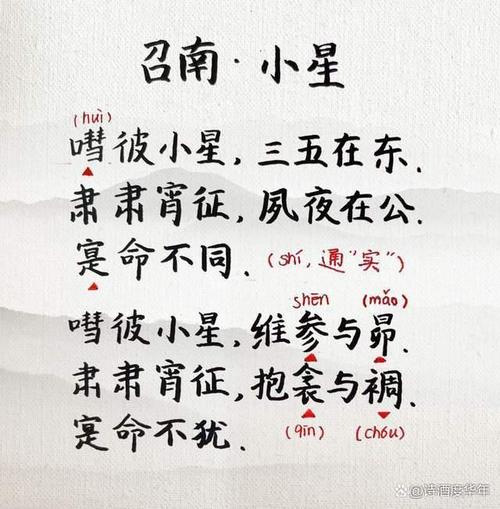 召南·小星
(huì)
嘒彼小星,三五在东.
肃肃宵征,夙夜在公.
寔命不同.(shí,通“实”)
shēn (mǎo)
嘒彼小星,维参与昴.
肃肃宵征,抱衾与裯.
(qīn) (chóu)
寔命不犹.
@诗酒度华年